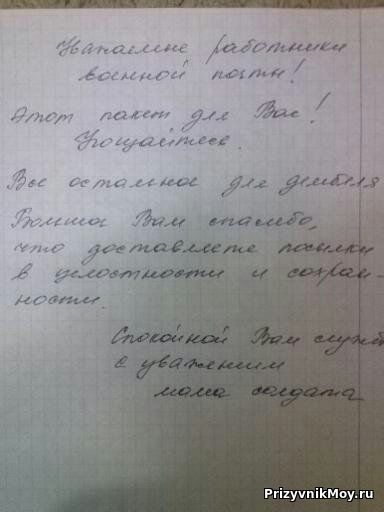 Уважаемые работники
военной почты!
Этот пакет для Вас!
Угощайтесь.
Все остальное для дембеля
Большое Вам спасибо,
что доставляете посылки
в целостности и сохран-
ности.
Спокойной Вам служб
с уважением
мама солдата
PrizyvnikMoy.ru